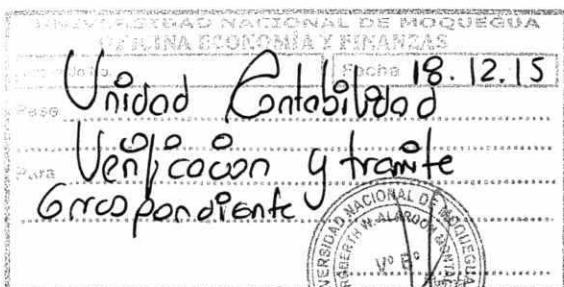 UNIVERSIDAD NACIONAL DE MOQUEGUA
OFICINA ECONOMÍA Y FINANZAS
Fecha 18.12.15
Pase Unidad Contabilidad
Para Verificacion y tramite
Correspondiente
UNIVERSIDAD NACIONAL DE MOQUEGUA
V° B°